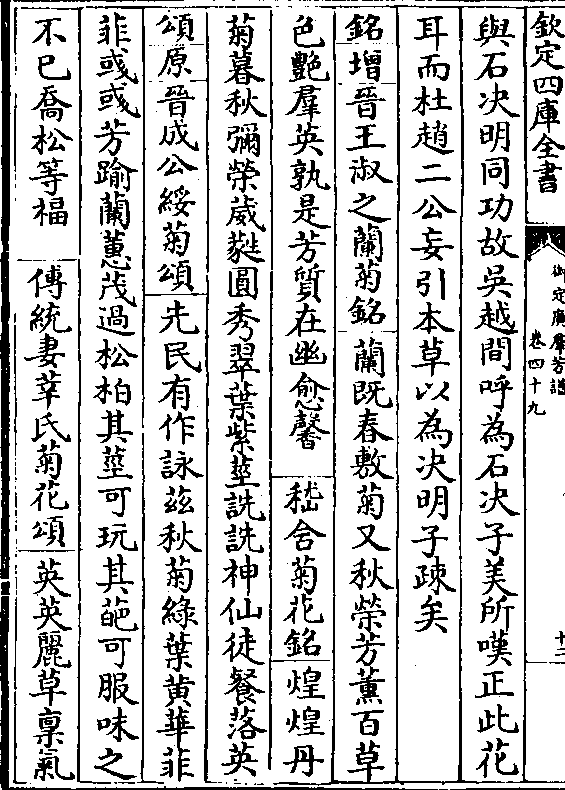 欽定四庫全書
御定廣羣芳譜
卷四十九
十二
與石决明同功故吳越間呼為石决子美所嘆正此花
耳而杜趙二公妄引本草以為决明子疎矣
銘增晉王淑之蘭菊銘 蘭既春敷菊又秋榮芳薫百草
色艷羣英孰是芳質在幽愈馨 嵇含菊花銘 煌煌丹
菊暮秋彌榮葳蕤圓秀翠葉紫莖詵詵神仙徒餐落英
頌原晉成公綏菊頌 先民有作詠兹秋菊綠葉黄華菲
菲彧彧芳踰蘭蕙茂過松柏其莖可玩其葩可服味之
不已喬松等福 傳統妻莘氏菊花頌 英英麗草禀氣